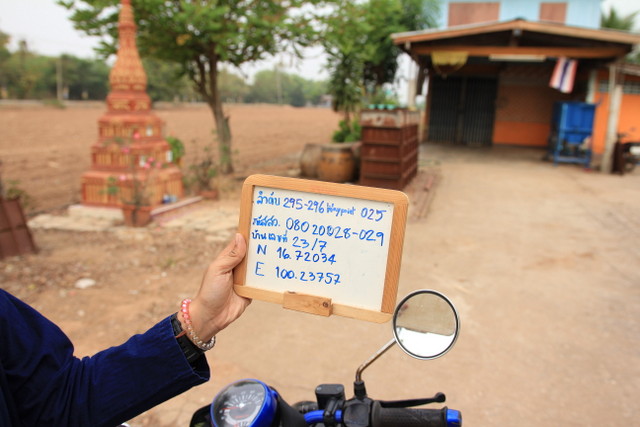 ลำดับ 295-296 Waypoint 025
รหัสสว. 08020828-029
บ้านเลขที่ 23/7
N 16.72034
E 100.23757